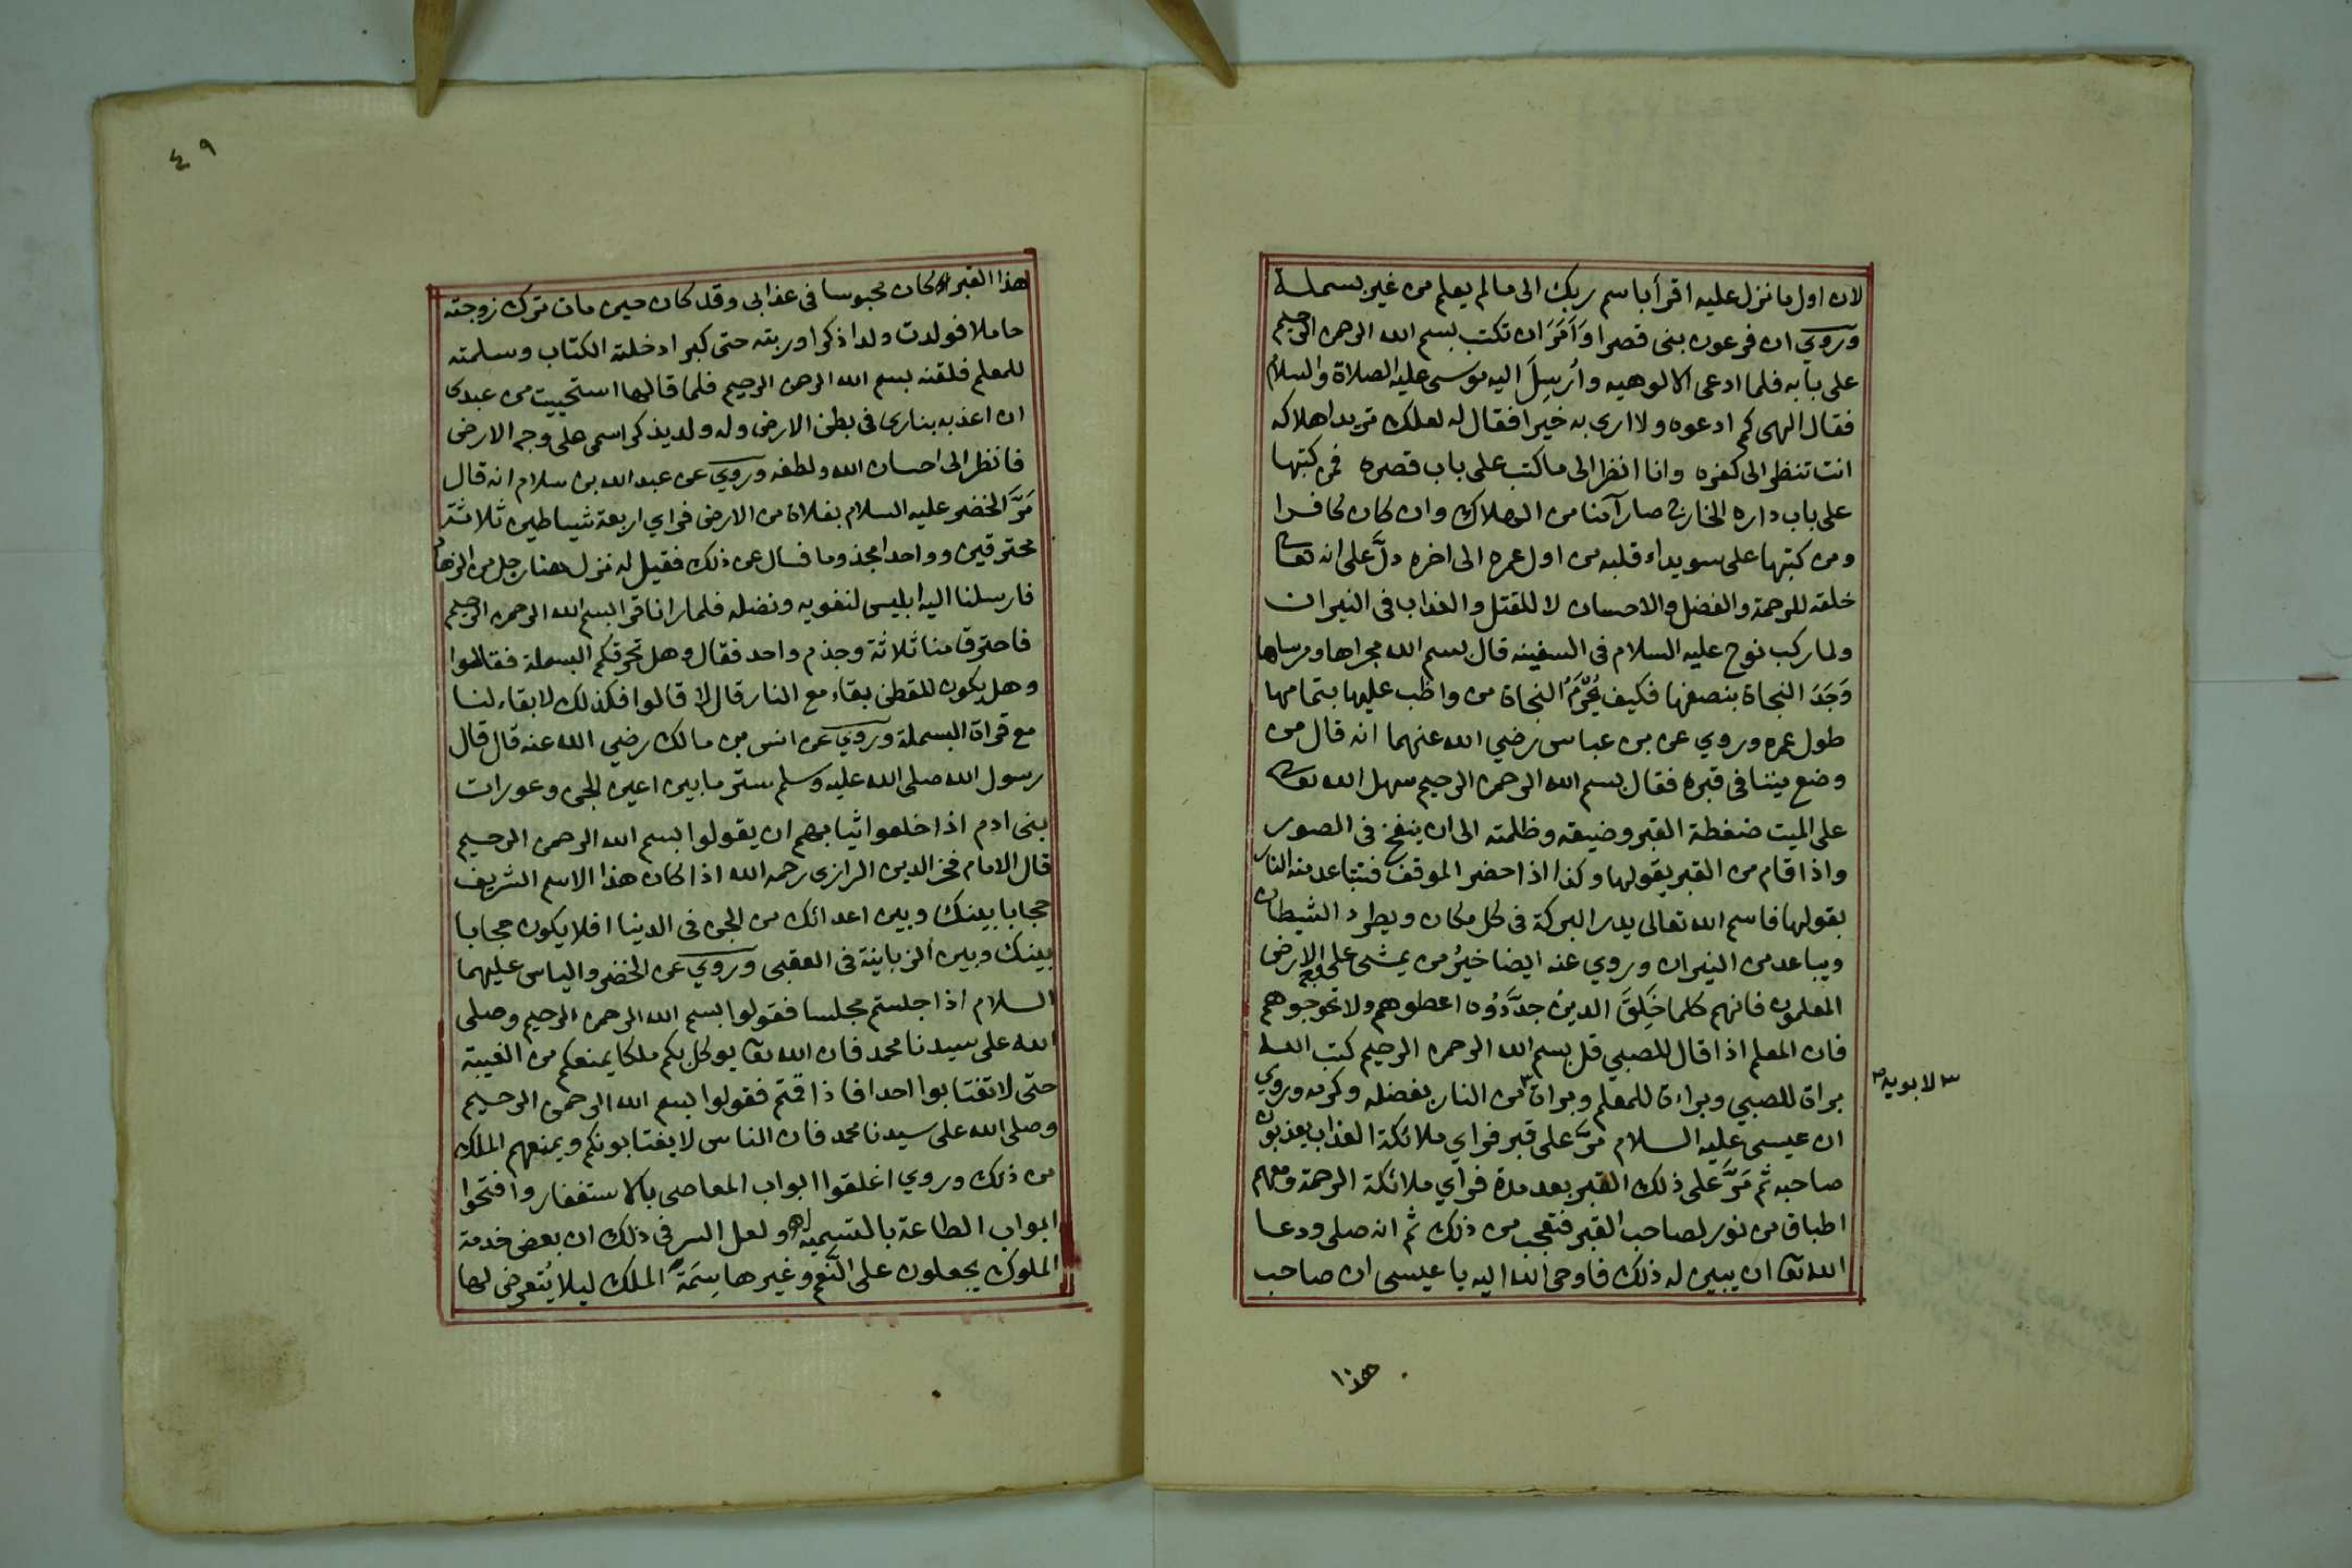 لان اول ما نزل عليه اقرأ باسم ربك الى ما لم يعلم من غير بسملة
وروي ان فرعون بنى قصرا وَاَمَرَ ان تكتب بسم الله الرحمن الرحيم
على بابه فلما ادعى الالوهيه وأُرسِلَ اليه موسى عليه الصلاة والسلام
فقال الهى كم ادعوه ولا ارى به خيرا فقال له لعلك تريد اهلاكه
انت تنظر الى كفره وانا انظر الى ما كتب على باب قصره فمن كتبها
على باب داره الخارج صار آمنا من الهلاك وان كان كافرا
ومن كتبها على سويداء قلبه من اول عمره الى اخره دلَّ على انه تعالى
خلقه للرحمة والفضل والاحسان لا للقتل والعذاب فى النيران
ولما ركب نوح عليه السلام فى السفينه قال بسم الله مجراها ومرساها
وَجَدَ النجاة بنصفها فكيف يُحْرَمُ النجاة من واظب عليها بتمامها
طول عمره وروي عن بن عباس رضي الله عنهما انه قال من
وضع ميتا فى قبره فقال بسم الله الرحمن الرحيم سهل الله تعالى
على الميت ضغطة القبر وضيقه وظلمته الى ان ينفخ فى الصور
واذا قام من القبر يقولها وكذا اذا حضر الموقف فتتباعد منه النار
بقولها فاسم الله تعالى يدر البركة فى كل مكان ويطرد الشيطان
ويباعد من النيران وروي عنه ايضا خيرُ من يمشى على وجه الارض
المعلمون فانهم كلما خَلِقَ الدينُ جدَّدُوه اعطوهم ولا تحوجوهم
فان المعلم اذا قال للصبي قل بسم الله الرحمن الرحيم كتب الله
براة للصبي وبراءة للمعلم وبراة ٣ من النار بفضله وكرمه وروي
٣ لابويه ص
ان عيسى عليه السلام مرَّ على قبر فراي ملائكة العذاب يعذبون
صاحبه ثم مَرَّ على ذلك القبر بعد مدة فراي ملائكة الرحمة ومعهم
اطباق من نور لصاحب القبر فتعجب من ذلك ثم انه صلى ودعا
الله تعا ان يبين له ذلك فاوحى الله اليه يا عيسى ان صاحب
هذا
٤٩
هذا القبر كان محبوسا فى عذابى وقد كان حين مات ترك زوجته
حاملا فولدت ولدا ذكرا وربته حتى كبر ادخلته الكتاب وسلمته
للمعلم فلقنه بسم الله الرحمن الرحيم فلما قالها استحييت من عبدى
ان اعذبه بنارى فى بطن الارض وله ولد يذكر اسمى على وجه الارض
فانظر الى احسان الله ولطفه وروي عن عبد الله بن سلام انه قال
مَرَّ الخضر عليه السلام بفلاة من الارض فراي اربعة شياطين ثلاثة
محترقين وواحدا مجذوما فسال عن ذلك فقيل له نزل هنا رجل من الزهاد
فارسلنا اليه ابليس لنغويه ونضله فلما رانا قرا بسم الله الرحمن الرحيم
فاحترق منا ثلاثة وجذم واحد فقال وهل تحرقكم البسملة فقالوا
وهل يكون للقطن بقاء مع النار قال لا قالوا فكذلك لا بقاء لنا
مع قراة البسملة وروي عن انس بن مالك رضي الله عنه قال قال
رسول الله صلى الله عليه وسلم ستر ما بين اعين الجن وعورات
بنى ادم اذا خلعوا ثيابهم ان يقولوا بسم الله الرحمن الرحيم
قال الامام فخر الدين الرازى رحمه الله اذا كان هذا الاسم الشريف
حجابا بينك وبين اعدائك من الجن فى الدينا افلا يكون حجابا
بينك وبين الزبانية فى العقبى وروي عن الخضر والياس عليهما
السلام اذا جلستم مجلسا فقولوا بسم الله الرحمن الرحيم وصلى
الله على سيدنا محمد فان الله تعا يوكل بكم ملكا يمنعكم من الغيبة
حتى لا تغتابوا احدا فاذا قمتم فقولوا بسم الله الرحمن الرحيم
وصلى الله على سيدنا محمد فان الناس لا يغتابونكم ويمنعهم الملك
من ذلك وروي اغلقوا ابواب المعاصى بالاستغفار وافتحوا
ابواب الطاعة بالتسميه ولعل السر فى ذلك ان بعض خدمة
الملوك يجعلون على النَّعم وغيرها سِمَةَ الملك ليلا يُتعرض لها